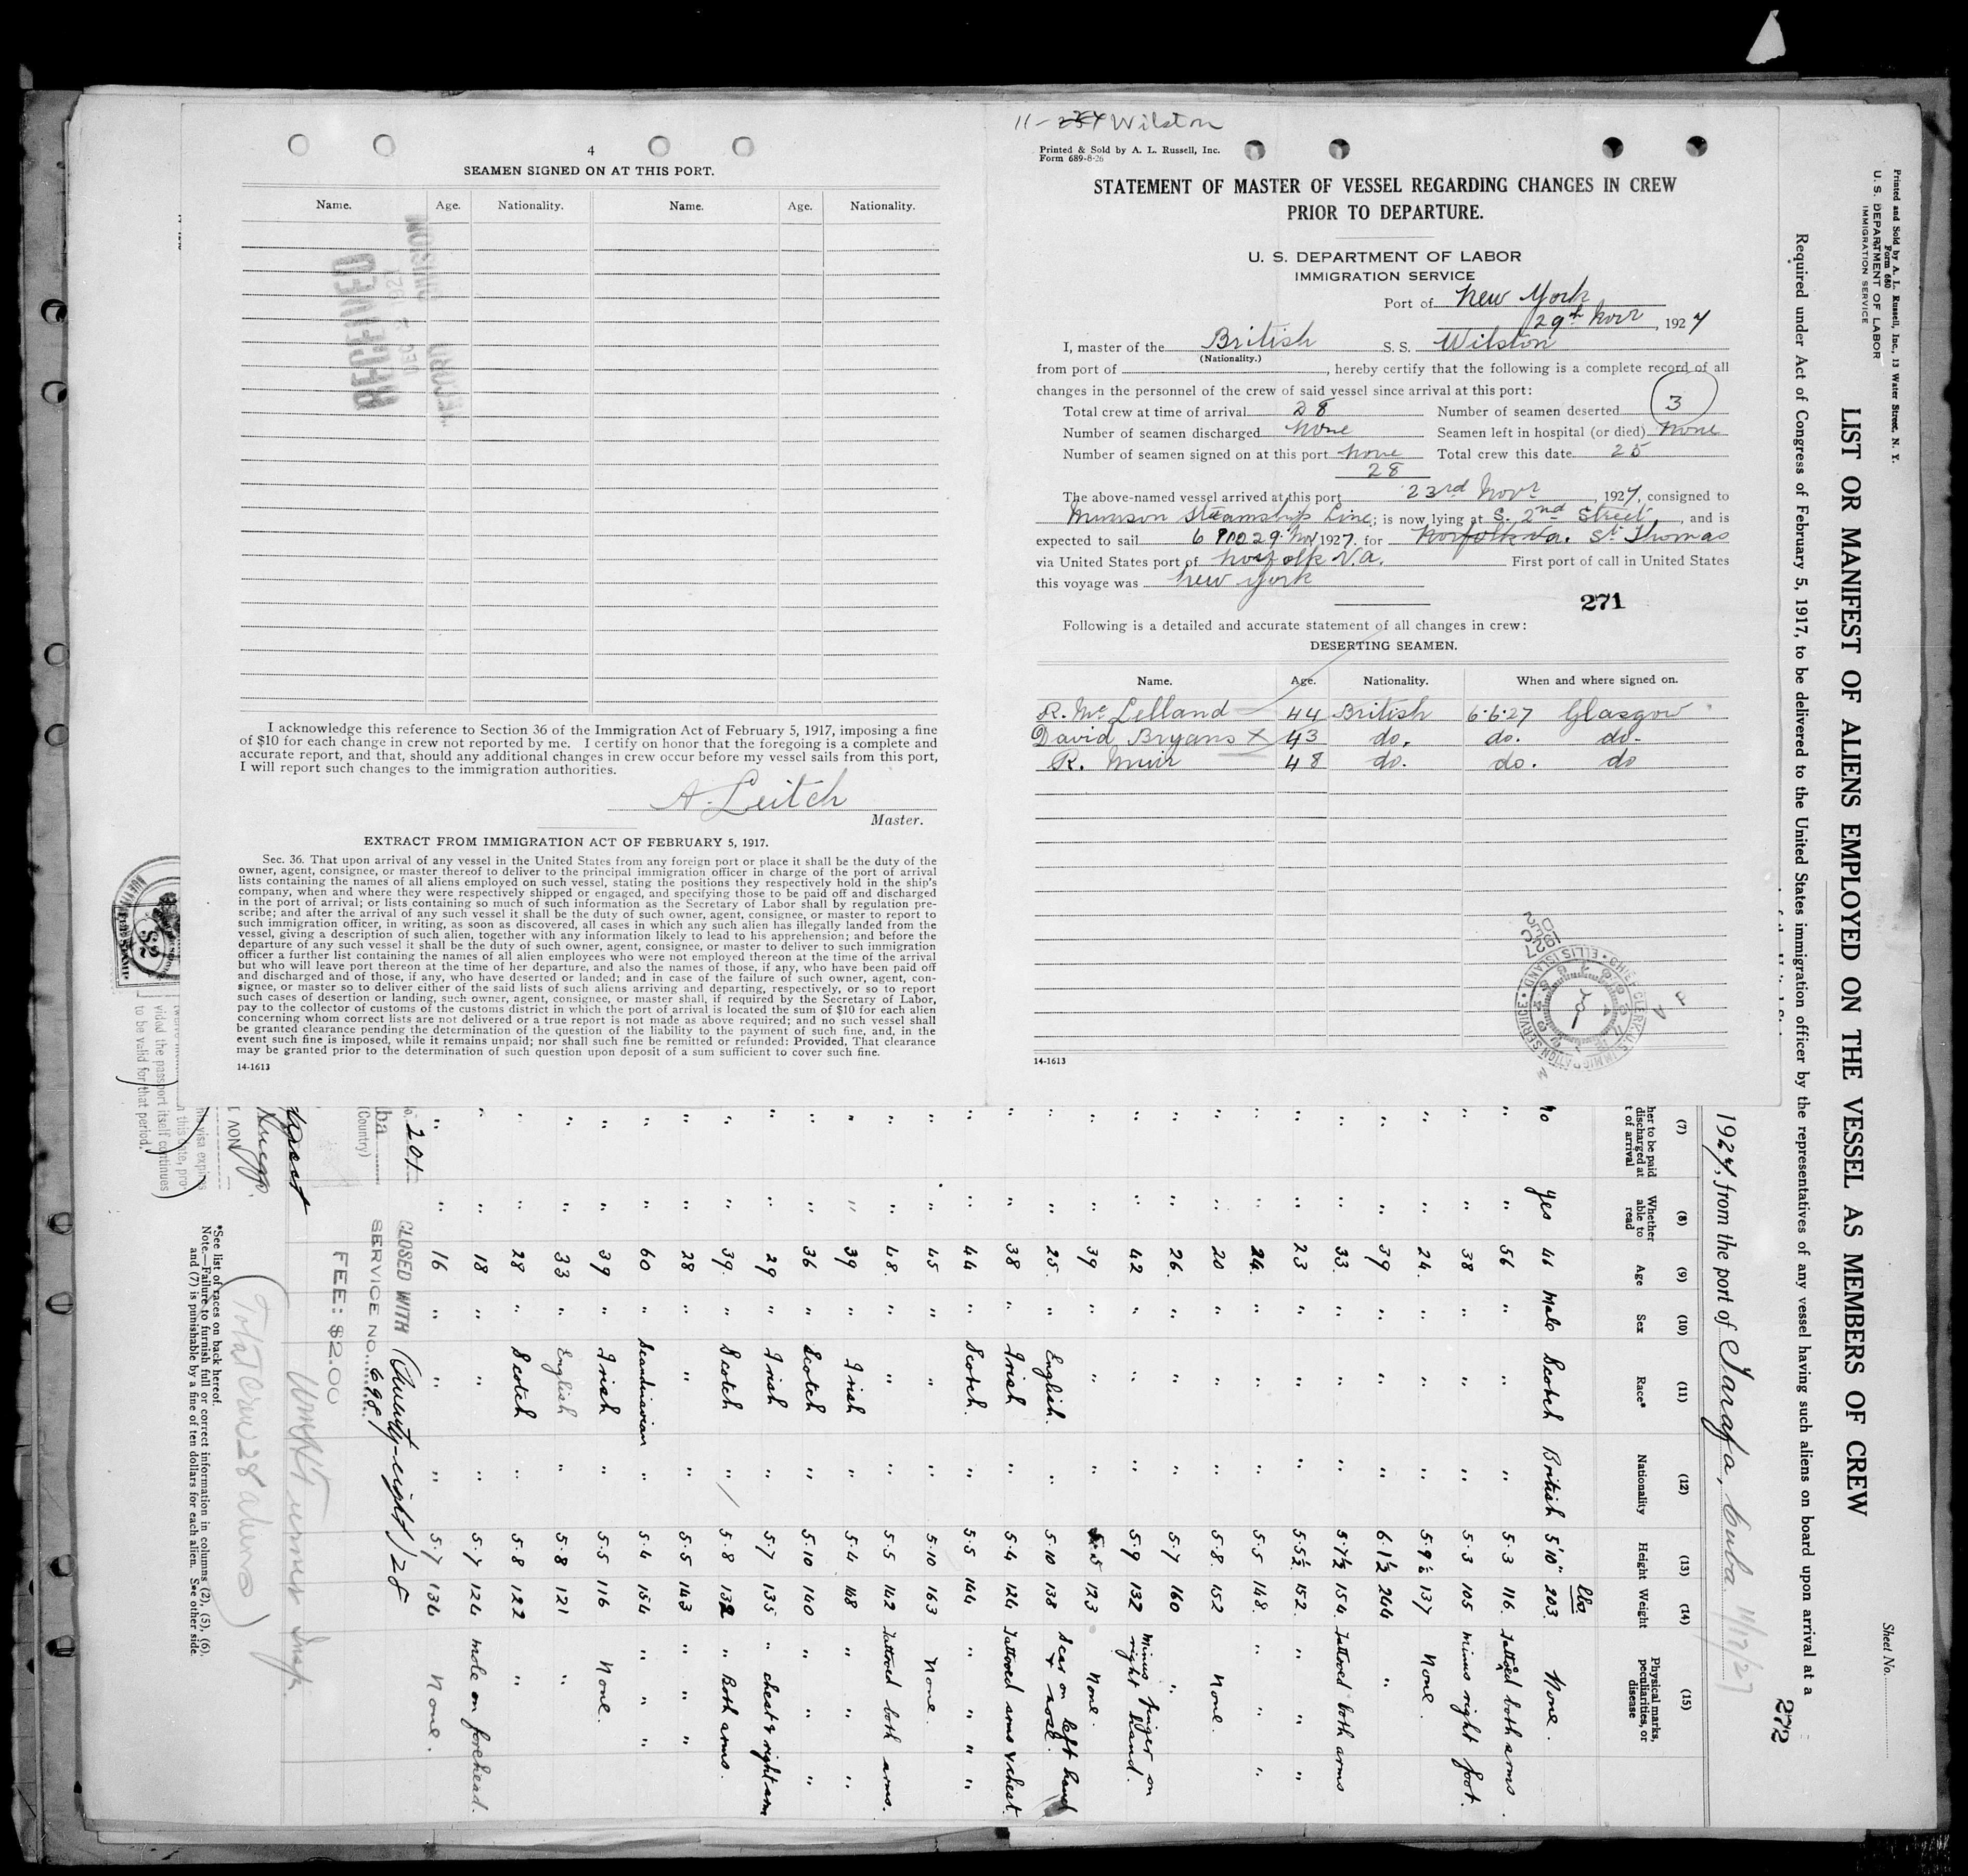 4
SEAMEN SIGNED ON AT THIS PORT.
Name. Age. Nationality. Name. Age. Nationality.
RECEIVED
I acknowledge this reference to Section 36 of the Immigration Act of February 5, 1917, imposing a fine
of $10 for each change in crew not reported by me. I certify on honor that the foregoing is a complete and
accurate report, and that, should any additional changes in crew occur before my vessel sails from this port,
I will report such changes to the immigration authorities.
A. Leitch
Master.
EXTRACT FROM IMMIGRATION ACT OF FEBRUARY 5, 1917.
Sec. 36. That upon arrival of any vessel in the United States from any foreign port or place it shall be the duty of the
owner, agent, consignee, or master thereof to deliver to the principal immigration officer in charge of the port of arrival
lists containing the names of all aliens employed on such vessel, stating the positions they respectively hold in the ship's
company, when and where they were respectively shipped or engaged, and specifying those to be paid off and discharged
in the port of arrival; or lists containing so much of such information as the Secretary of Labor shall by regulation pre-
scribe; and after the arrival of any such vessel it shall be the duty of such owner, agent, consignee, or master to report to
such immigration officer, in writing, as soon as discovered, all cases in which any such alien has illegally landed from the
vessel, giving a description of such alien, together with any information likely to lead to his apprehension; and before the
departure of any such vessel it shall be the duty of such owner, agent, consignee, or master to deliver to such immigration
officer a further list containing the names of all alien employees who were not employed thereon at the time of the arrival
but who will leave port thereon at the time of her departure, and also the names of those, if any, who have been paid off
and discharged and of those, if any, who have deserted or landed; and in case of the failure of such owner, agent, con-
signee, or master so to deliver either of the said lists of such aliens arriving and departing, respectively, or so to report
such cases of desertion or landing, such owner, agent, consignee, or master shall, if required by the Secretary of Labor,
pay to the collector of customs of the customs district in which the port of arrival is located the sum of $10 for each alien
concerning whom correct lists are not delivered or a true report is not made as above required; and no such vessel shall
be granted clearance pending the determination of the question of the liability to the payment of such fine, and, in the
event such fine is imposed, while it remains unpaid; nor shall such fine be remitted or refunded: Provided, That clearance
may be granted prior to the determination of such question upon deposit of a sum sufficient to cover such fine.
14-1613
11-234 Wilston
Printed & Sold by A. L. Russell, Inc.
Form 689-8-26
STATEMENT OF MASTER OF VESSEL REGARDING CHANGES IN CREW
PRIOR TO DEPARTURE.
U. S. DEPARTMENT OF LABOR
IMMIGRATION SERVICE
Port of New York
29th Novr, 1927
I, master of the British S. S. Wilston
(Nationality.)
from port of , hereby certify that the following is a complete record of all
changes in the personnel of the crew of said vessel since arrival at this port:
Total crew at time of arrival 28 Number of seamen deserted 3
Number of seamen discharged None Seamen left in hospital (or died) None
Number of seamen signed on at this port None Total crew this date 25
28
The above-named vessel arrived at this port 23rd Novr, 1927, consigned to
Munson Steamship Line; is now lying at S. 2nd Street, and is
expected to sail 6 PM 29 Nov 1927. for Norfolk Va. St Thomas
via United States port of Norfolk V.A. First port of call in United States
this voyage was New York
271
Following is a detailed and accurate statement of all changes in crew:
DESERTING SEAMEN.
Name. Age. Nationality. When and where signed on.
R. McLelland 44 British 6.6.27 Glasgow
David Bryans X 43 do. do. do.
R. Muir 48 do. do. do
14-1613
Printed and Sold by A. L. Russell, Inc., 13 Water Street, N. Y.
Form 680
U. S. DEPARTMENT OF LABOR
IMMIGRATION SERVICE
Sheet No.
LIST OR MANIFEST OF ALIENS EMPLOYED ON THE VESSEL AS MEMBERS OF CREW
Required under Act of Congress of February 5, 1917, to be delivered to the United States immigration officer by the representatives of any vessel having such aliens on board upon arrival at a
272
1927, from the port of Tarafa, Cuba 11/17/27
(7) (8) (9) (10) (11) (12) (13) (14) (15)
her to be paid discharged at t of arrival Whether able to read Age Sex Race* Nationality Height Weight Physical marks, peculiarities, or disease
lbs.
no yes 46 Male Scotch British 5'10" 203. None.
" " 56 " " " 5.3 116. Tattooed both arms.
" " 38 " " " 5.3 105 Minus right foot.
" " 24. " " " 5.9½ 137 None.
" " 39 " " " 6.1½ 244 "
" " 33. " " " 5.7½ 154. Tattooed both arms
" " 23 " " " 5.5½ 152. " "
" " 24. " " " 5.5 148. " "
" " 20 " " " 5.8. 152 None.
" " 26. " " " 5.7 160 "
" " 42 " " " 5.9 132 Minus finger on right hand.
" " 39 " " " 5.5 123 None.
" " 25. " English. " 5.10 138 Scar on left hand & nose.
" " 38 " Irish " 5.4 124 Tattooed arms & chest.
" " 44 " Scotch. " 5.5 144 " " " "
" " 45 " " " 5.10 163 None.
" " 48. " " " 5.5 142 Tattooed both arms.
" " 39 " Irish " 5.4 148 " " "
" " 36 " Scotch " 5.10 140 " " "
" " 29 " Irish " 5.7 135 " chest & right arm
" " 39. " Scotch " 5.8 132 " Both arms.
" " 28 " " " 5.5 143 " " "
" " 60 " Scandinavian " 5.4 154 " " "
" " 39 " Irish " 5.5 116 None.
" " 33 " English " 5.8 121 "
" " 28 " Scotch " 5.8 122 "
" " 18 " " " 5.7 124 Mole on forehead.
" " 16 " " " 5.7 134 None.
201
(Country)
CLOSED WITH (Twenty-eight) 28
SERVICE NO. 6981
FEE: $2.00
(Total crew 28 aliens)
*See list of races on back hereof.
Note.—Failure to furnish full or correct information in columns (2), (5), (6),
and (7) is punishable by a fine of ten dollars for each alien. See other side.
vided the passport itself continues
to be valid for that period.